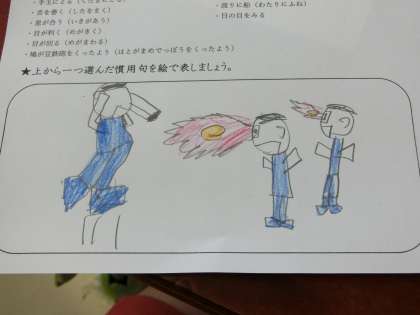 ・舌を巻く（したをまく）
・息が合う（いきがあう）
・目が利く（めがきく）
・目が回る（めがまわる）
・鳩が豆鉄砲をくったよう（はとがまめでっぽうをくったよう）
・渡りに船（わたりにふね）
・日の目をみる
★上から一つ選んだ慣用句を絵で表しましょう。